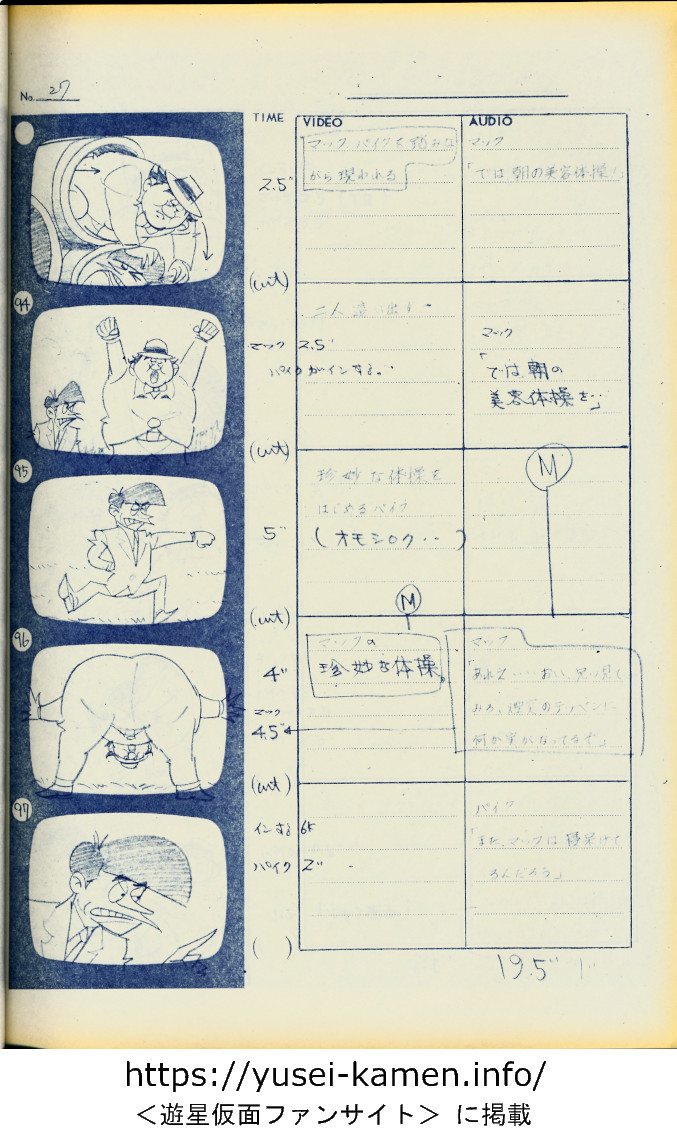 No. 27
TIME
VIDEO
AUDIO
マック バイクを踏みな
がら現われる
マック
「では朝の美容体操!」
2.5"
(cut)
94
二人
出す
マック 2.5"
パイクがインする。
マック
「では朝の
美容体操を」
(cut)
95
珍妙な体操を
はじめるパイク
(オモシロク・・)
5"
M
(cut)
96
M
マックの
珍妙な体操。
4"
マック
4.5"
マック
「あれえ・・・おい、
みろ、
何か実がなってるぞ」
(cut)
97
インする 6K
パイク 2"
パイク
「また、マックは寝呆けて
るんだろう」
( )
19.5"
https://yusei-kamen.info/
<遊星仮面ファンサイト> に掲載